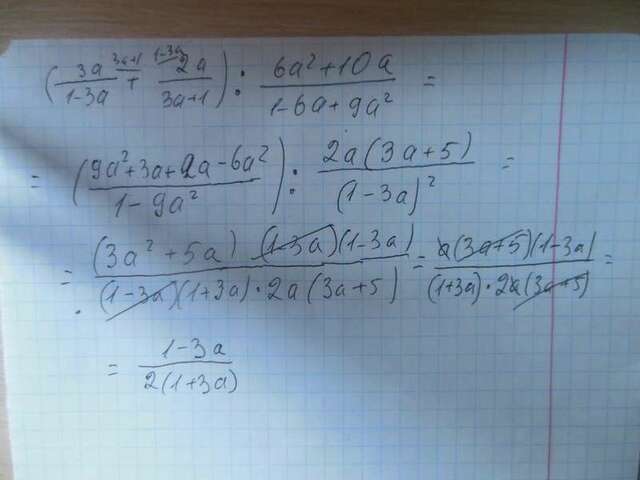 (3a/(1-3a) ^(3a+1) + ^(1-3a) 2a/(3a+1)) : (6a²+10a)/(1-6a+9a²) =
= ((9a²+3a+2a-6a²)/(1-9a²)) : 2a(3a+5)/(1-3a)² =
= (3a²+5a)(1-3a)(1-3a)/((1-3a)(1+3a)·2a(3a+5)) = a(3a+5)(1-3a)/((1+3a)·2a(3a+5)) =
= (1-3a)/(2(1+3a))